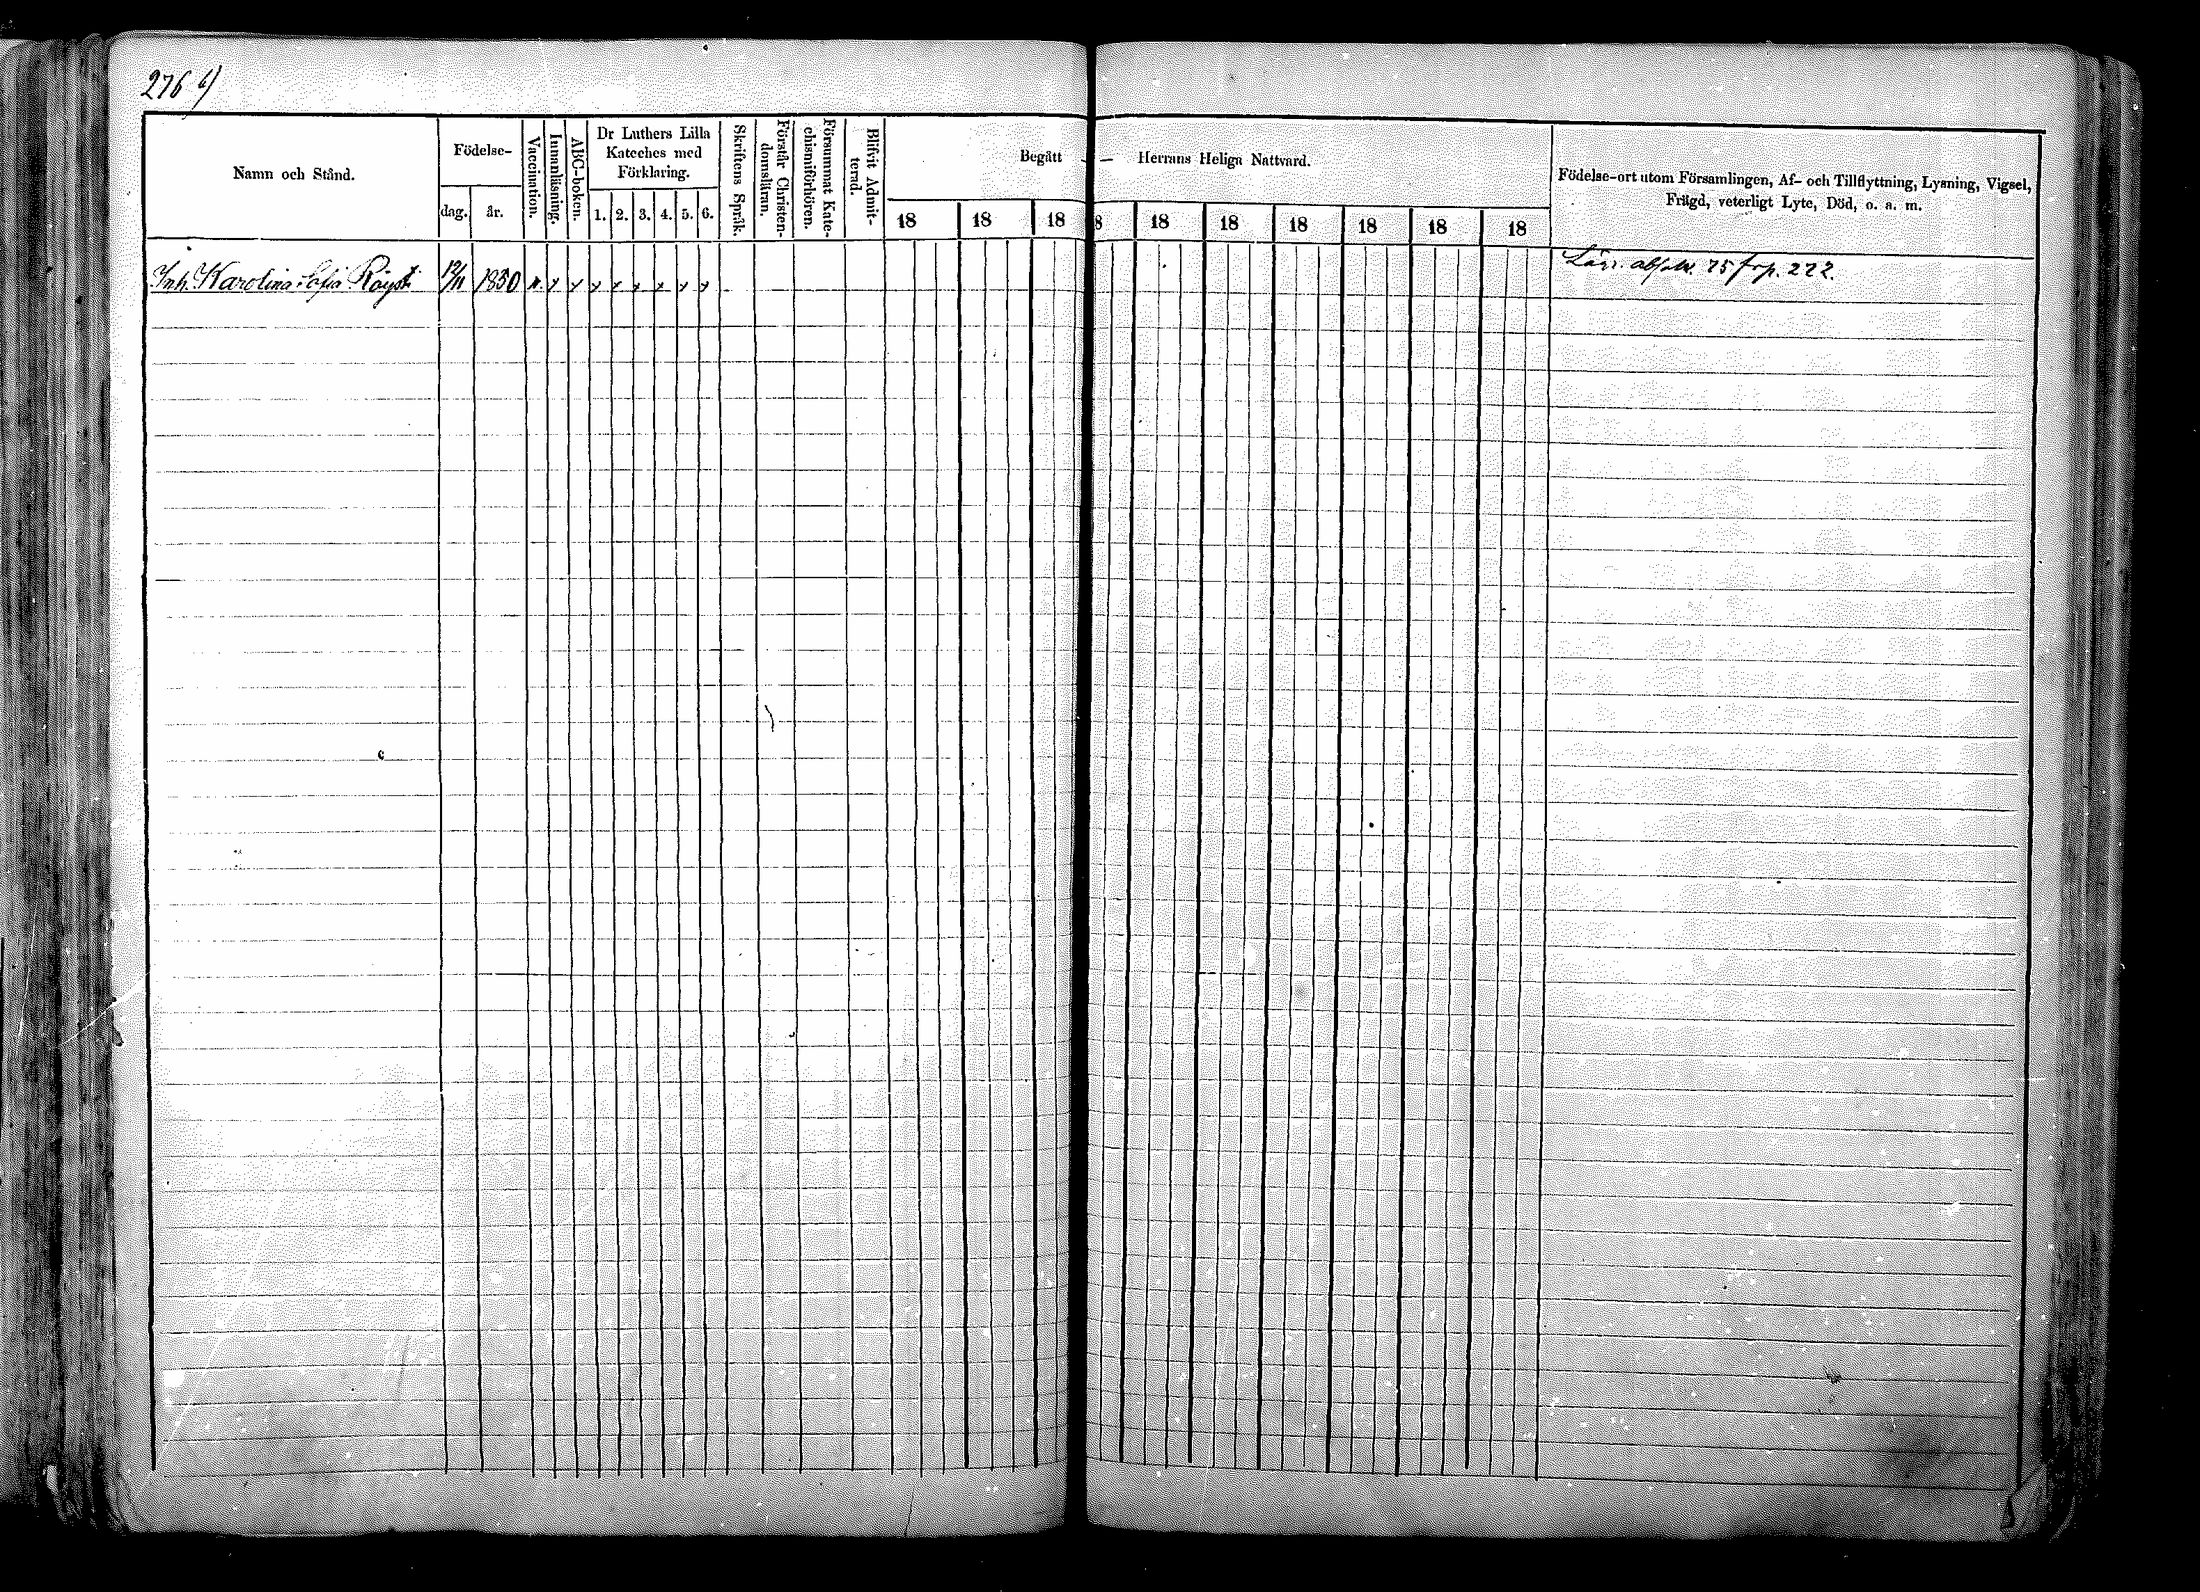 276 b)
Namn och Stånd.
Födelse-
dag.
år.
Vaccination.
Innanläsning.
ABC-boken.
Dr Luthers Lilla
Kateches med
Förklaring.
1. 2. 3. 4. 5. 6.
Skriftens Språk.
Förstår Christen-
domsläran.
Försummat Kate-
chismiförhören.
Blifvit Admit-
terad.
Begått — Herrans Heliga Nattvard.
18 18 18 8 18 18 18 18 18 18
Födelse-ort utom Församlingen, Af- och Tillflyttning, Lysning, Vigsel,
Frägd, veterligt Lyte, Död, o. a. m.
Inh. Karolina Sofia 1850 x x x x x x x x
75 frp. 222.